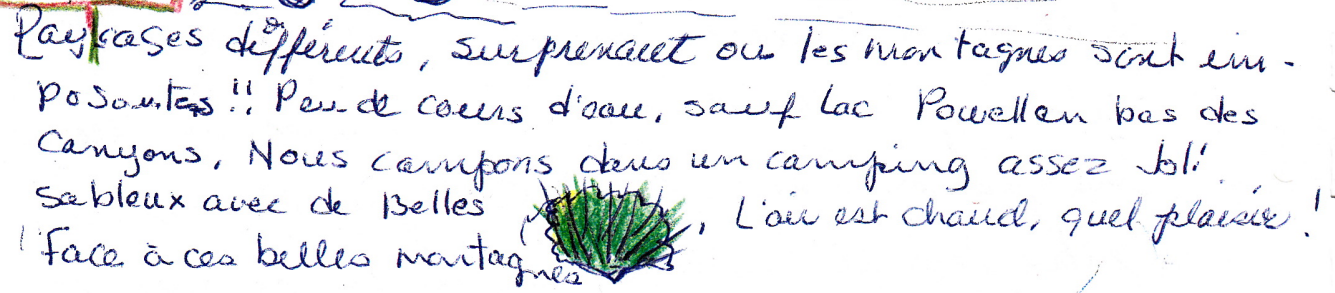 Paysages différents, surprenant ou les montagnes sont im-
posantes!! Peu de cours d'eau, sauf Lac Powell en bas des
Canyons. Nous campons dans un camping assez Joli
sableux avec de Belles , L'air est chaud, quel plaisir!
Face à ces belles montagnes